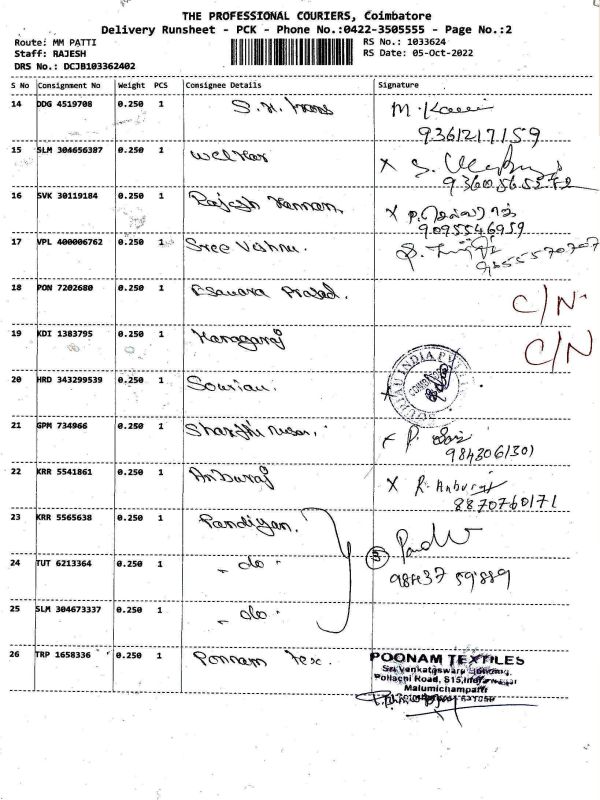 THE PROFESSIONAL COURIERS, Coimbatore
Delivery Runsheet - PCK - Phone No.:0422-3505555 - Page No.:2
Route: MM PATTI RS No.: 1033624
Staff: RAJESH RS Date: 05-Oct-2022
DRS No.: DCJB103362402
S No Consignment No Weight PCS Consignee Details Signature
14 DDG 4519708 0.250 1 M. Kavi
9361217159
15 SLM 304656387 0.250 1 X S.
16 SVK 30119184 0.250 1 Rajesh Kannan. X
9095546959
17 VPL 400006762 0.250 1 Sree Vishnu.
18 PON 7202680 0.250 1 Esavara Prasad. C/N
19 KDI 1383795 0.250 1 Kanagaraj C/N
20 HRD 343299539 0.250 1 Souriau. SOURIAU INDIA PVT
21 GPM 734966 0.250 1 P.
9843061301
22 KRR 5541861 0.250 1 Anburaj X R. Anburaj
8870760171
23 KRR 5565638 0.250 1 Pandiyan.
24 TUT 6213364 0.250 1 - do - 3
98437 59889
25 SLM 304673337 0.250 1 - do -
26 TRP 1658336 0.250 1 Ponnam Tex. POONAM TEXTILES
Sri Venkateswara
Pollachi Road,
Malumichampatti